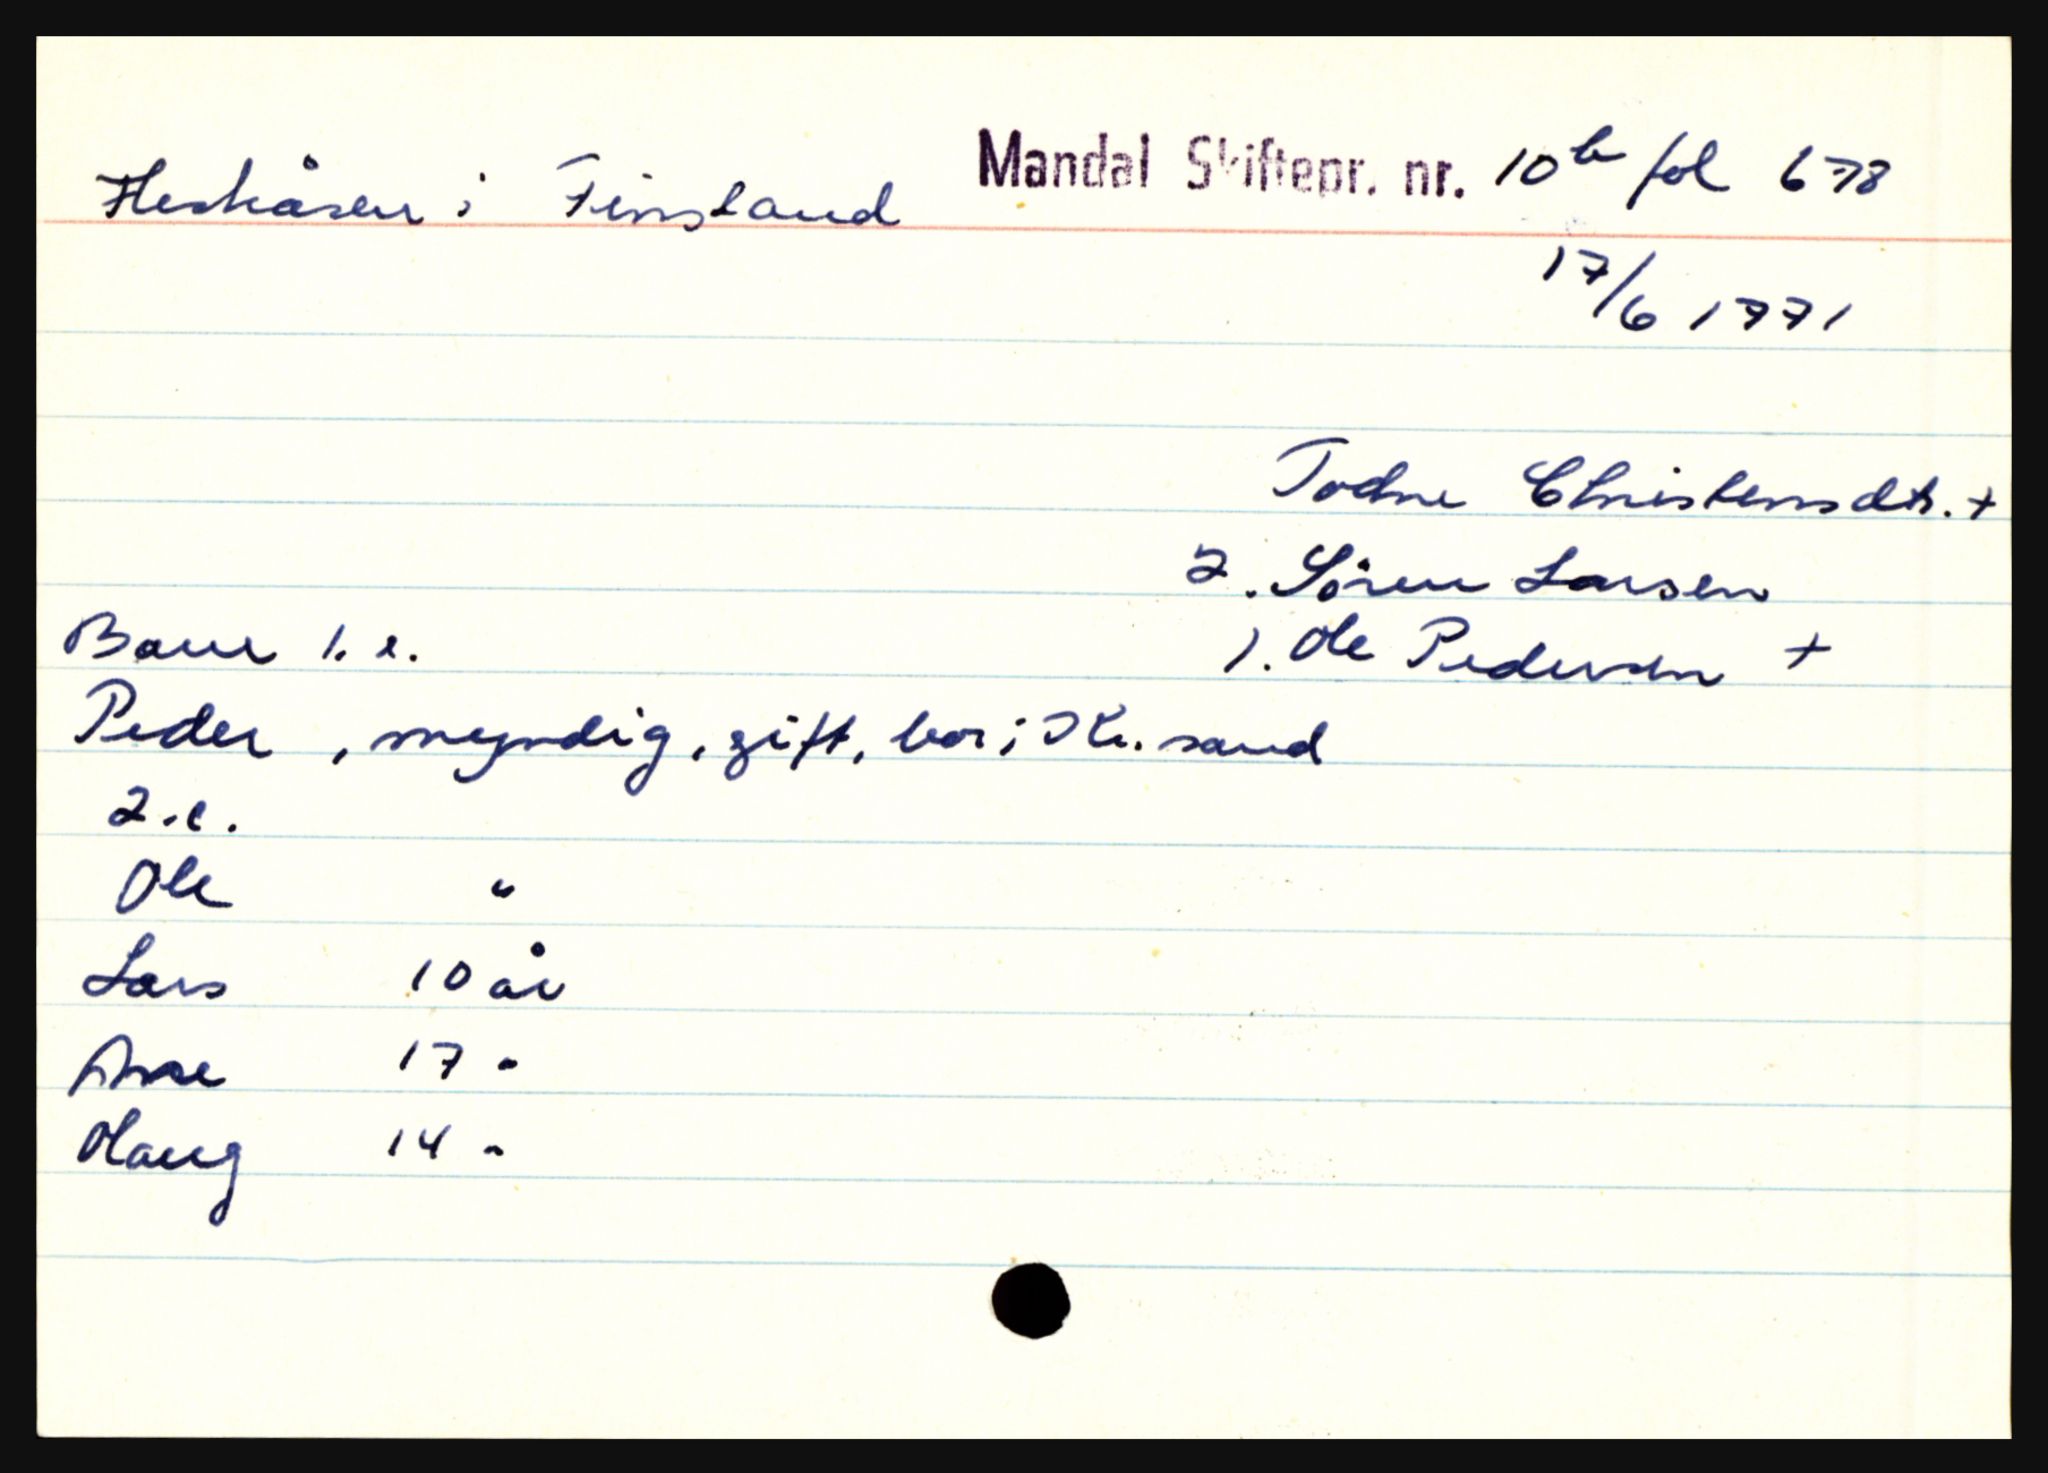 Heskåsen i Finsland Mandal Skiftepr. nr. 10b fol 678
17/6 1771
Todne Christensdtr. +
2. Sören Larsen
Barn 1. e. 1. Ole Pedersen +
Peder , myndig, gift, bor i Kr. sand
2. e.
Ole "
Lars 10 år
Anne 17 "
Olaug 14 "